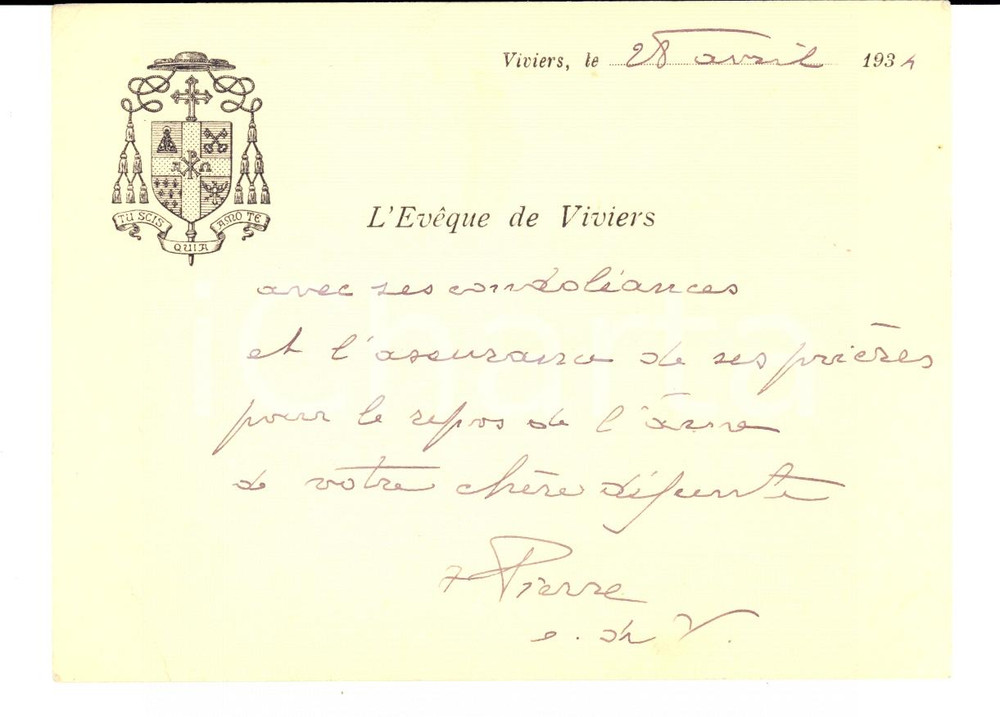 Viviers, le 28 avril 1934
TU SCIS QUIA AMO TE
A Ω
L'Evêque de Viviers
avec ses condoléances
et l'assurance de ses prières
pour le repos de l'âme
de votre chère défunte
+ Pierre
e. de V.
iCharta